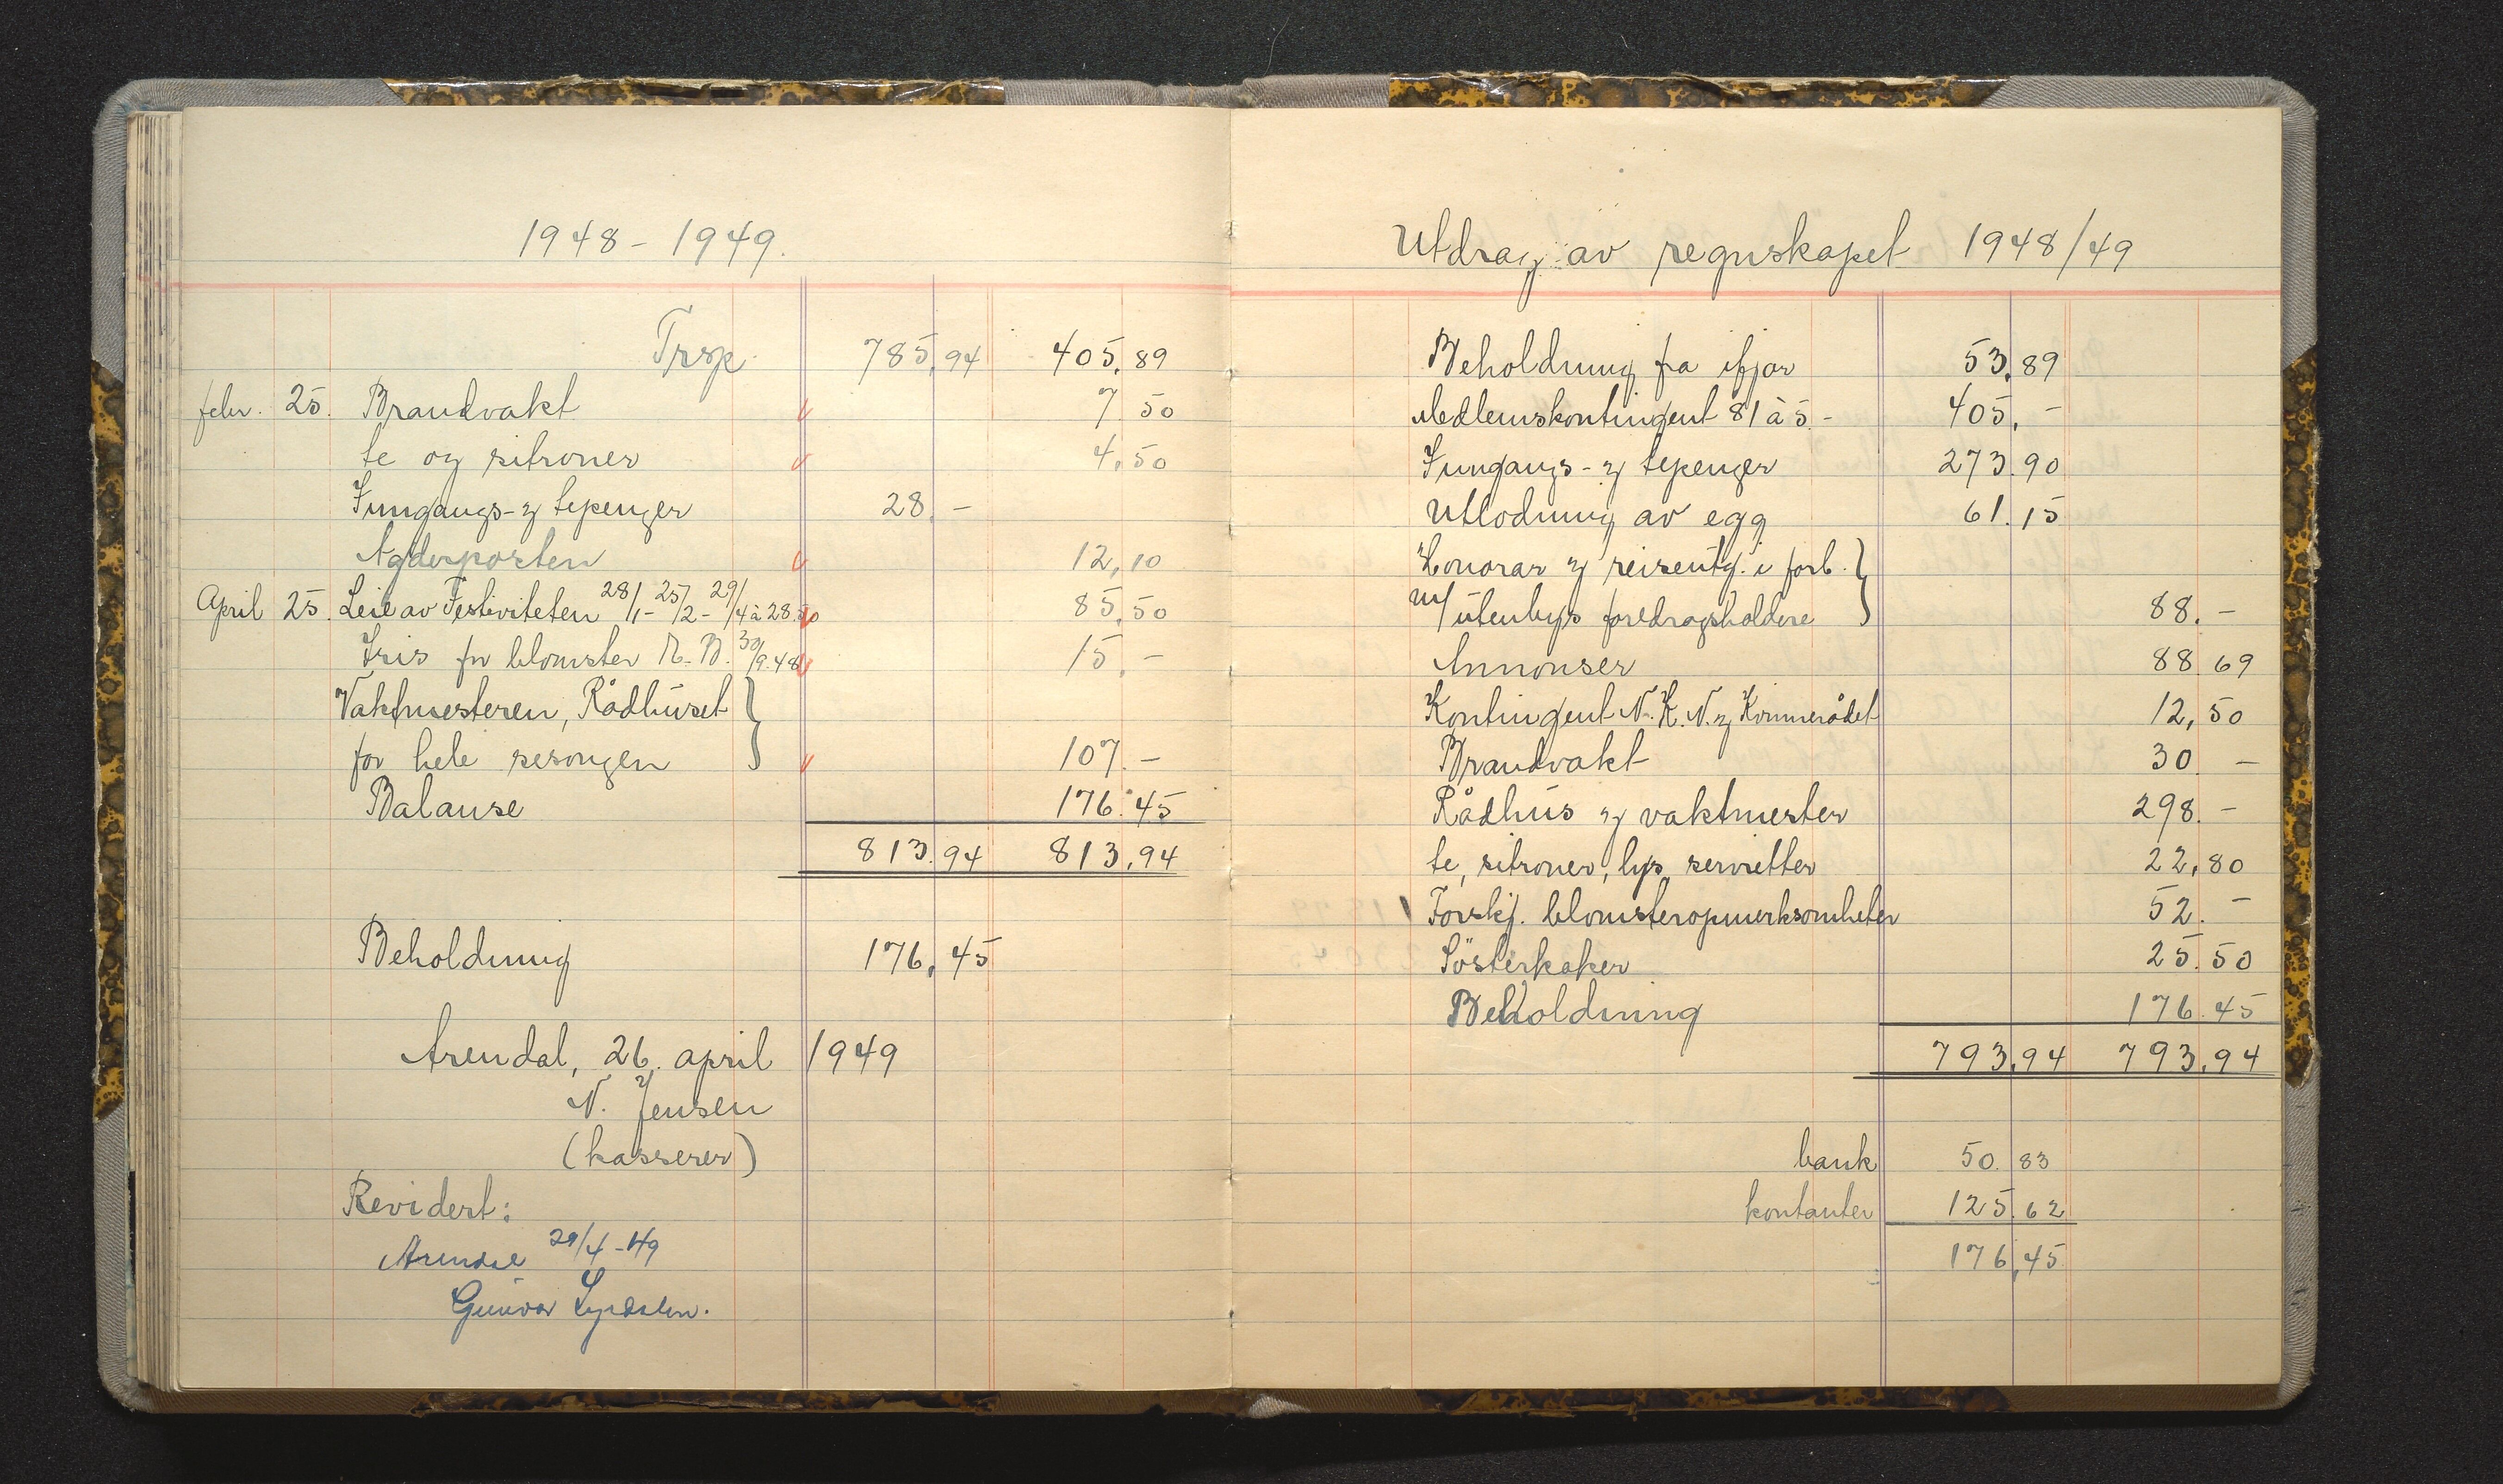 1948 - 1949.
Trsp. 785,94 405,89
febr. 25. Brandvakt 7 50
te og sitroner 4,50
Inngangs- og tepenger 28 -
Agderposten 12,10
April 25. Leie av Festiviteten 28/1 - 25/2 - 29/4 à 28.50 85,50
Iris for blomster R.B. 30/9.48 15,-
Vaktmesteren, Rådhuset }
for hele sesongen } 107.-
Balanse 176.45
813.94 813,94
Beholdning 176,45
Arendal, 26. april 1949
N. Jensen
(kasserer)
Revidert:
Arendal 29/4-49
Gunvor
Utdrag av regnskapet 1948/49
Beholdning fra ifjor 53,89
Medlemskontingent 81 à 5.- 405,-
Inngangs- og tepenger 273.90
Utlodning av egg 61.15
Honorar og reiseutg. i forb. }
m/utenbys foredragsholdere } 88.-
Annonser 88 69
Kontingent N.K.N. og Kvinnerådet 12,50
Brandvakt 30 -
Rådhus og vaktmester 298.-
te, sitroner, lys, servietter 22,80
Forskj. blomsteropmerksomheter 52.-
Søsterkaker 25.50
Beholdning 176.45
793.94 793.94
bank 50.83
kontanter 125.62
176,45